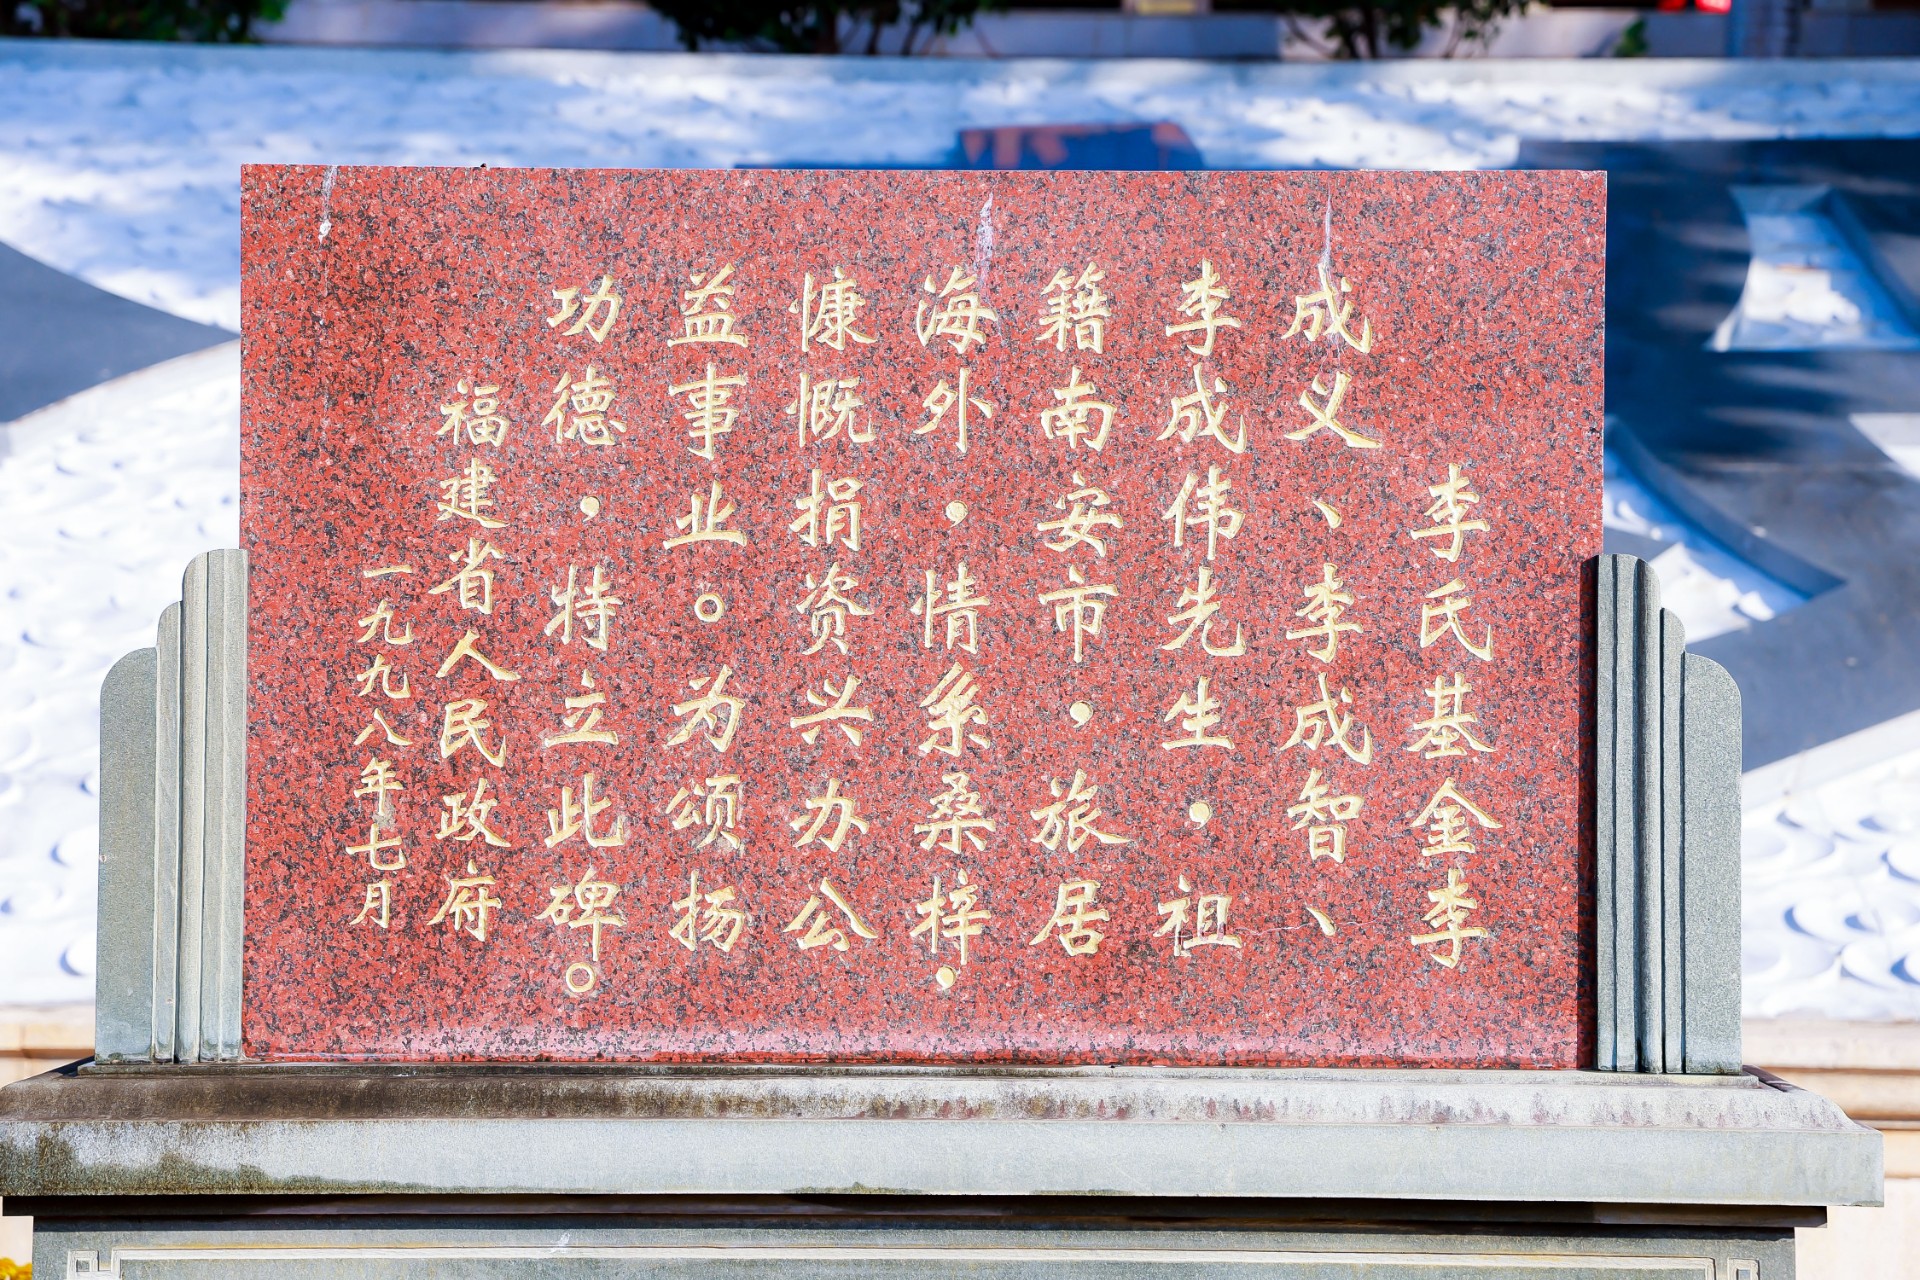 李氏基金李
成义、李成智、
李成伟先生，祖
籍南安市，旅居
海外，情系桑梓，
慷慨捐资兴办公
益事业。为颂扬
功德，特立此碑。
福建省人民政府
一九九八年七月